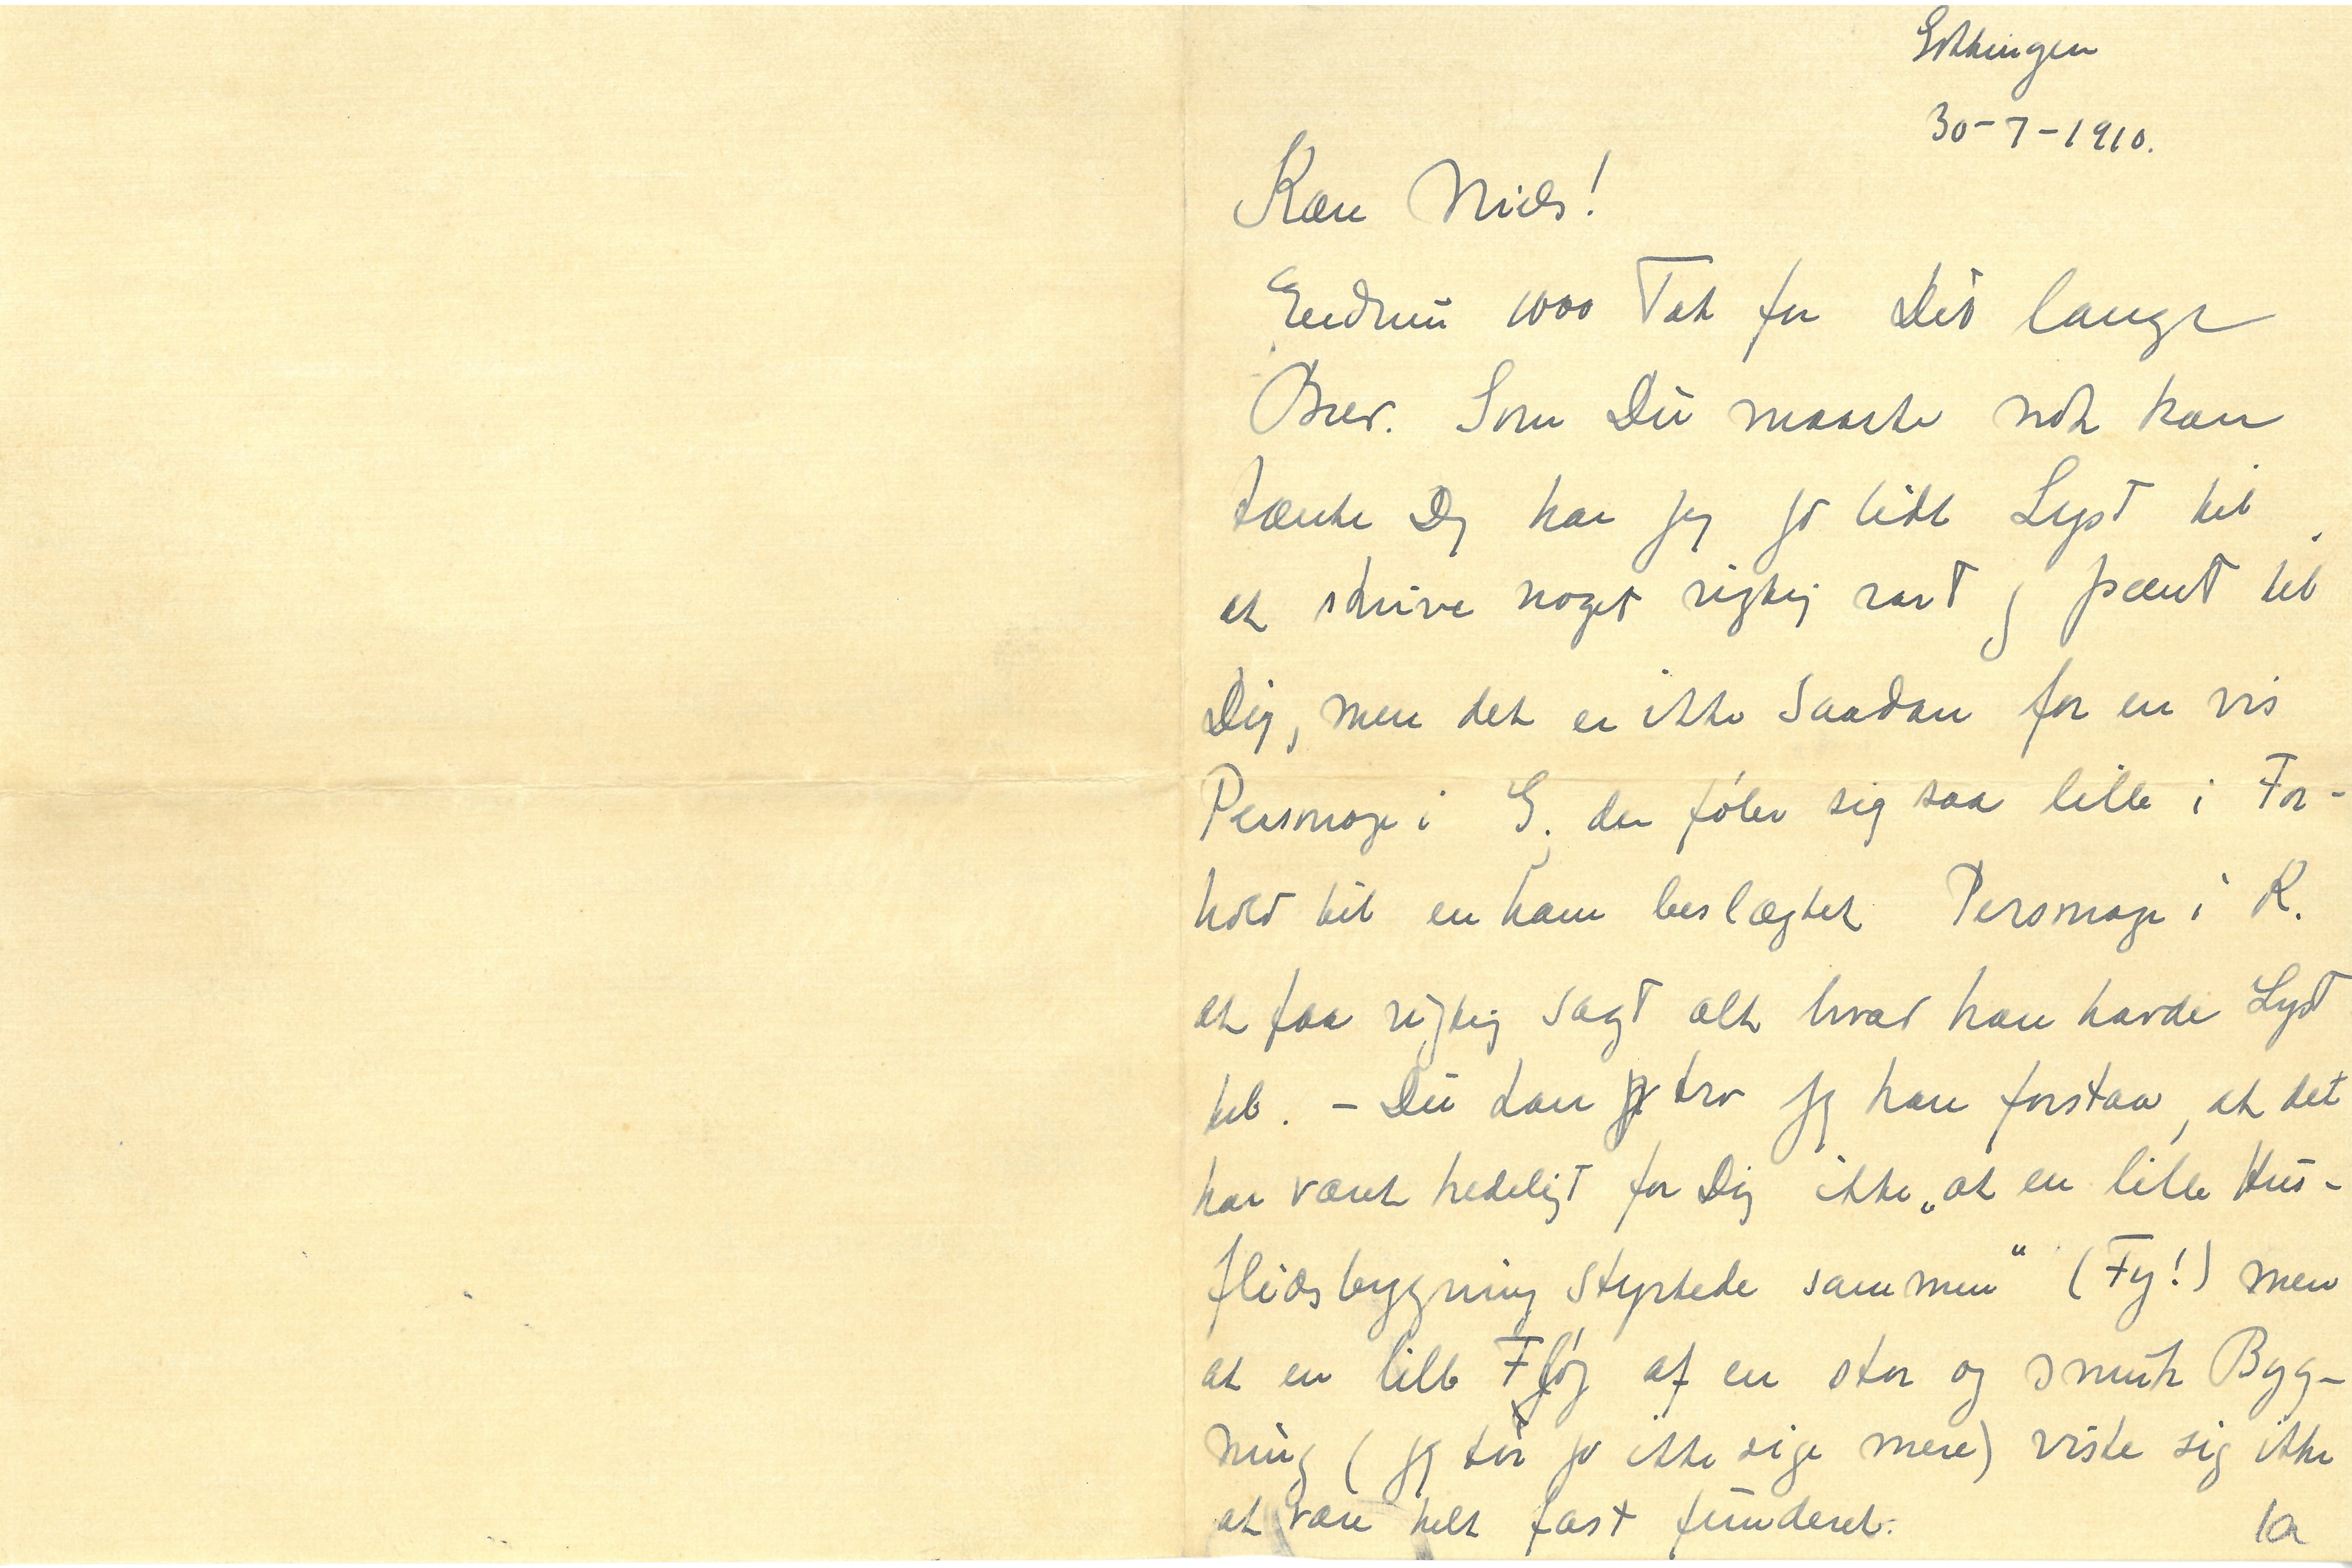 Göttingen
30-7-1910.
Kære Niels!
Endnu 1000 Tak for Dit lange
Brev. Som Du maaske nok kan
tænke Dig har jeg jo lidt Lyst til
at skrive noget rigtig rart og pænt til
Dig, men det er ikke saadan for en vis
Personage i G. der føler sig saa lille i For-
hold til en ham beslægtet Personage i K.
at faa rigtig sagt alt hvad han havde Lyst
til. - Du kan tro jeg kan forstaa, at det
har været kedeligt for Dig ikke „at en lille Hus-
flidsbygning styrtede sammen“ (Fy!) men
at en lille Fløj af en stor og smuk Byg-
ning (jeg tør jo ikke sige mere) viste sig ikke
at være helt fast funderet.